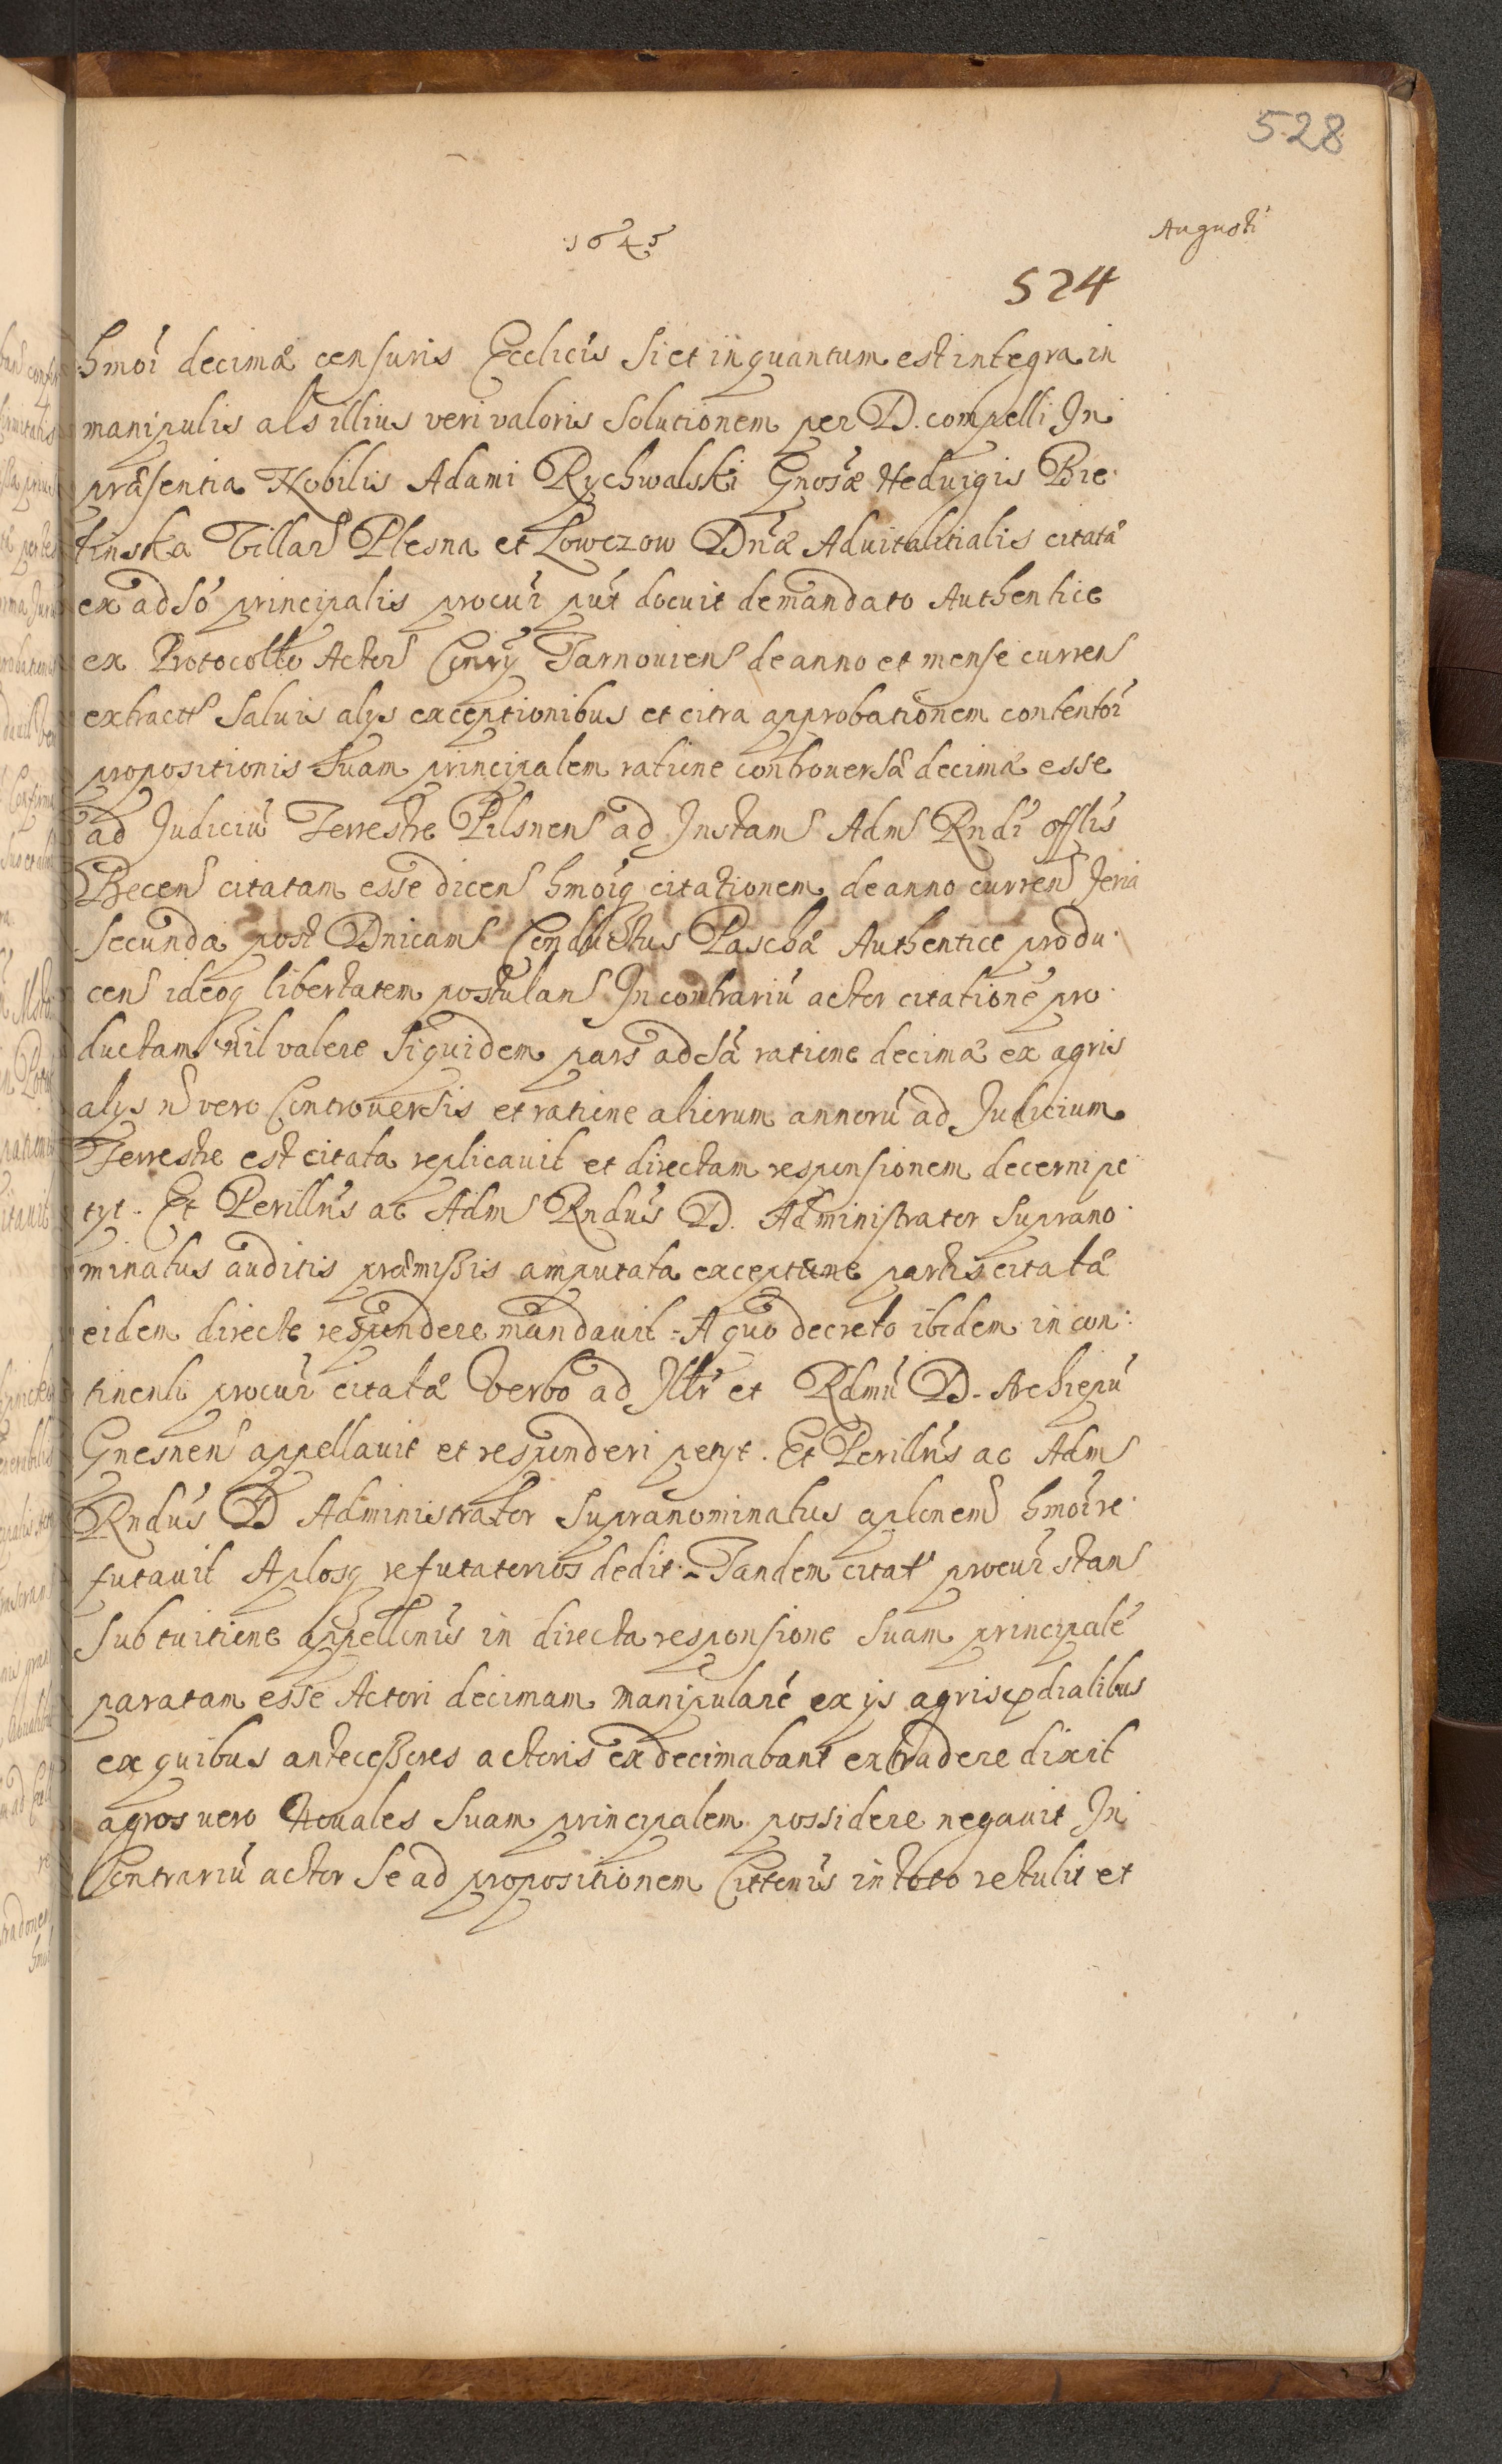 528
1645
Augusti
524
hmoi decimæ censuris Ecclicis si et inquantum est integra in
manipulis als illius veri valoris solutionem per D. compelli In
præsentia Nobilis Adami Rychwalski Gnosæ Heduigis Bie
tinska Villar Plesna et Lowczow Dnæ Aduitalitialis citatæ
ex adso principalis procur put docuit de mandato Authentice
ex Protocollo Actor Conrij Tarnouien de anno et mense curren
extract saluis alys exceptionibus et citra approbationem contentor
propositionis suam principalem ratione controuersæ decimæ esse
ad Judiciu Terrestre Pilsnen ad Instam Adm Rndi offlis
Becen citatam esse dicen hmoiq citationem de anno curren feria
secunda post Dnicam Conductus Paschæ Authentice produ
cen ideoq libertatem postulan In contrariu actor citatione pro
ductam nil valere siquidem pars adsa ratione decimæ ex agris
alys n vero Controuersis et ratione aliorum annoru ad Judicium
Terrestre est citata replicauit et directam responsionem decerni pe
tyt. Et Perillris ac Adm Rndus D. Administrator suprano
minatus auditis præmissis amputata exceptione partis citatæ
eidem directe respondere mandauit. A quo decreto ibidem in con
tinenti procur citatæ verbo ad Illr et Rdmu D. Archiepu
Gnesnen appellauit et responderi petyt. Et Perillris ac Adm
Rndus D Administrator supranominatus aplonem hmoi re
futauit Aplosq refutatorios dedit. Tandem citat procur stan
sub tuitione appellonis in directa responsione suam principale
paratam esse Actori decimam manipulare ex ijs agris prdialibus
ex quibus antecessores actoris exdecimabant extradere dixit
agros vero Nouales suam principalem possidere negauit In
Contrariu actor se ad propositionem Cittonis in toto retulit et